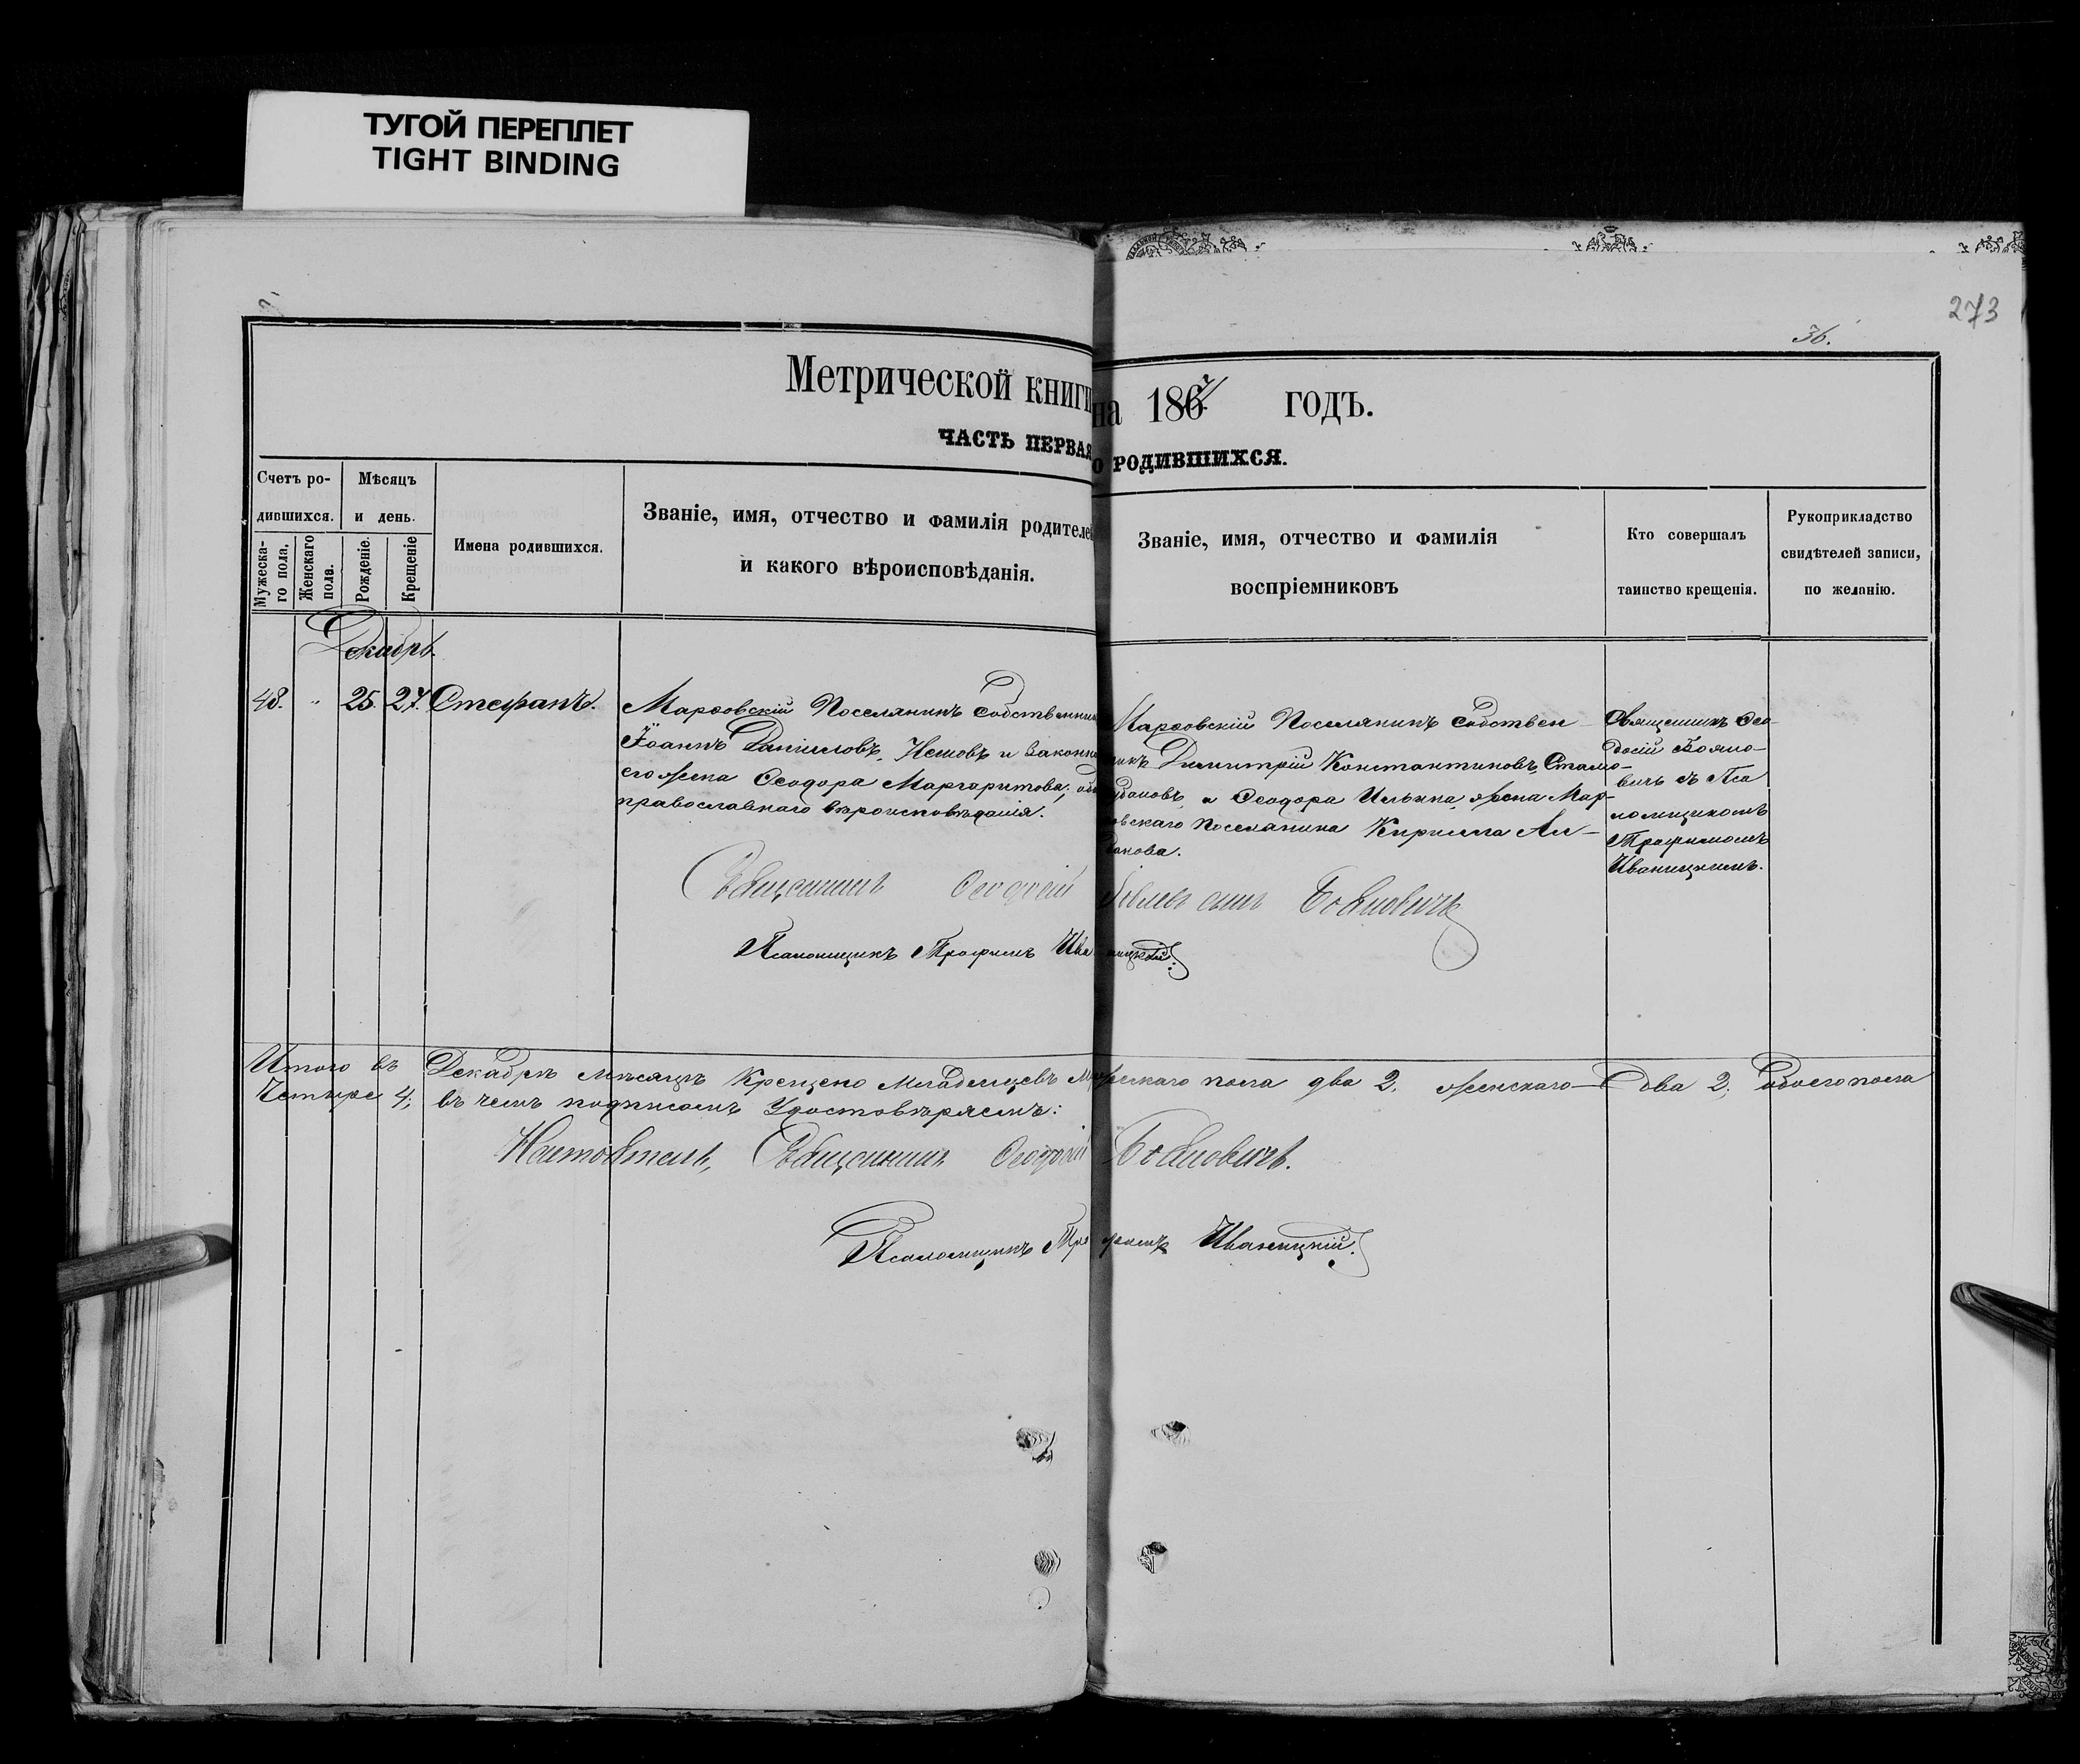 ТУГОЙ ПЕРЕПЛЕТ
TIGHT BINDING
273
36.
Метрической книги на 1867 годъ.
ЧАСТЬ ПЕРВАЯ О РОДИВШИХСЯ.
Счетъ родившихся.
Мужескаго пола.
Женскаго пола.
Мѣсяцъ и день.
Рожденіе.
Крещеніе
Имена родившихся.
Званіе, имя, отчество и фамилія родителей
и какого вѣроисповѣданія.
Званіе, имя, отчество и фамилія
воспріемниковъ
Кто совершалъ
таинство крещенія.
Рукоприкладство
свидѣтелей записи,
по желанію.
Декабрь.
48. " 25. 27. Стефанъ.
Поселянинъ Собственникъ
Іоаннъ Даніиловъ, и Законная
его жена Ѳеодора Маргаритова; оба
православнаго вѣроисповѣданія.
Поселянинъ Собствен-
никъ Димитрій Константиновъ
и Ѳеодора Ильина жена Мар-
Поселянина Кирилла
Священникъ Ѳео-
досій Бояно-
вичъ съ Пса
ломщикомъ
Трофимомъ
Иваницкимъ.
Священникъ Ѳеодосій Бояновичъ
Псаломщикъ Трофимъ Иваницкій.
Итого въ Декабрѣ мѣсяцѣ Крещено Младенцевъ Мужескаго пола два 2, женскаго два 2, обоего пола
Четыре 4; въ чемъ подписомъ Удостовѣряемъ:
Настоятель, Священникъ Ѳеодосій Бояновичъ.
Псаломщикъ Трофимъ Иваницкій.